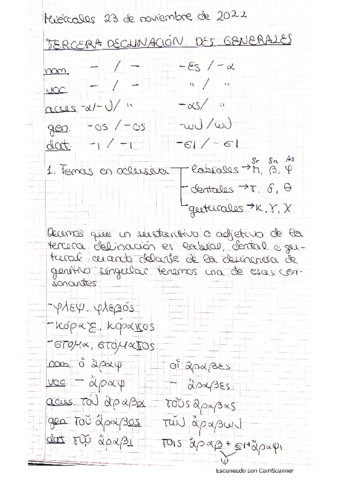 Miércoles 23 de noviembre de 2022
TERCERA DECLINACIÓN DES GENERALES
nom. - / - -ες / -α
voc - / - " / "
acus -α/-ν/ " -ας/ "
gen -ος / -ος -ων / ων
dat -ι / -ι -σι / -σι
Sr Sn As
1. Temas en oclusiva labiales → π, β, φ
- dentales → τ, δ, θ
- guturales → κ, γ, χ
Decimos que un sustantivo o adjetivo de la
tercera delinación es labial, dental o gu-
tural cuando delante de la desinencia de
genitivo singular tenemos una de esas con-
sonantes
- φλεψ, φλεβός
- κόραξ, κόρακος
- στομα, στόματος
nom. ὁ ἄραψ οἱ ἄραβες
voc - ἄραψ - ἄραβες
acus τὸν ἄραβα τοὺς ἄραβας
gen τοῦ ἄραβος τῶν ἄραβων
dat τῷ ἄραβι τοις ἄραβ + σι → ἄραψι
Escaneado con CamScanner